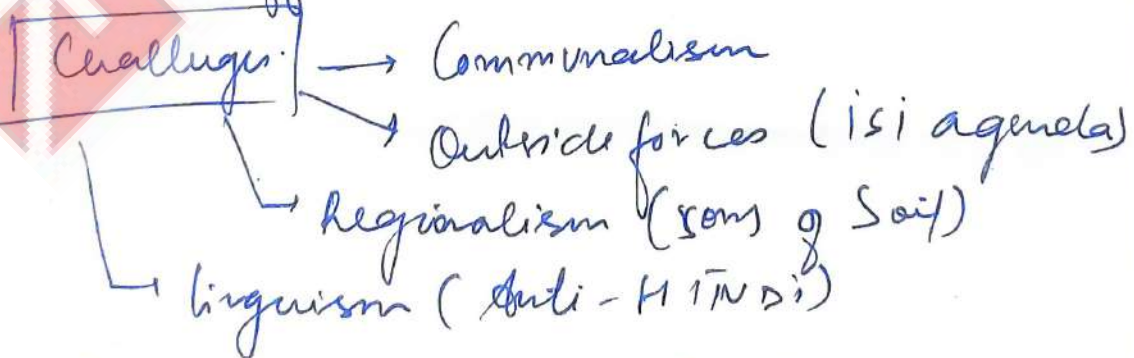 Challenges. → Communalism
→ Outside forces (isi agenda)
→ Regionalism (sons of Soil)
→ linguism (Anti-HINDi)